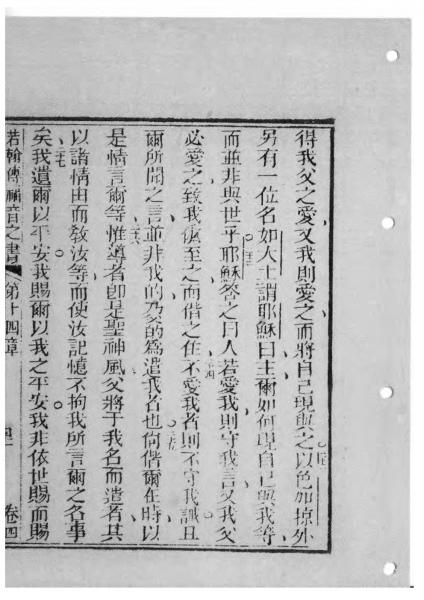 得我父之愛又我則愛之而將自己現與之以色加掠外
另有一位名如大士謂耶穌曰主爾如何現自己與我等
而並非與世乎耶穌答之曰人若愛我則守我言又我父
必愛之致我儕至之而偕之住不愛我者則不守我誡且
爾所聞之言並非我的乃父的為遣我者也尚偕爾在時以
是情言爾等惟導者即是聖神風父將于我名而遣者其
以諸情由而教汝等而使汝記憶不拘我所言爾之各事
矣我遺爾以平安我賜爾以我之平安我非依世賜而賜
若翰傳福音之書 第十四章 卷四